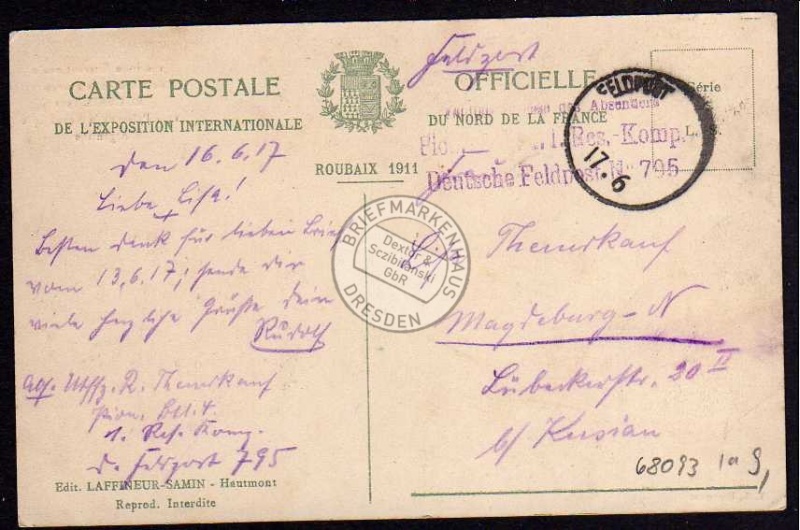 CARTE POSTALE
DE L'EXPOSITION INTERNATIONALE
OFFICIELLE
DU NORD DE LA FRANCE
ROUBAIX 1911
Série
Feldpost
FELDPOST
17.6
des Absenders
Res.-Komp.
Deutsche Feldpost Nr 795
den 16.6.17
Liebe Lisa!
Besten Dank für lieben Brief
vom 13.6.17; sende dir
viele herzliche Grüße dein
Rudolf
Abs. Utffz. R. Themskauf
Pion. Btl. 4
1. Res. Komp.
d. Feldpost 795
Themskauf
Magdeburg-N
Lübeckerstr. 20 II
b/ Kusian
BRIEFMARKENHAUS
Dexter &
Sczibilanski
GbR
DRESDEN
Edit. LAFFINEUR-SAMIN - Hautmont
Reprod. Interdite
68093